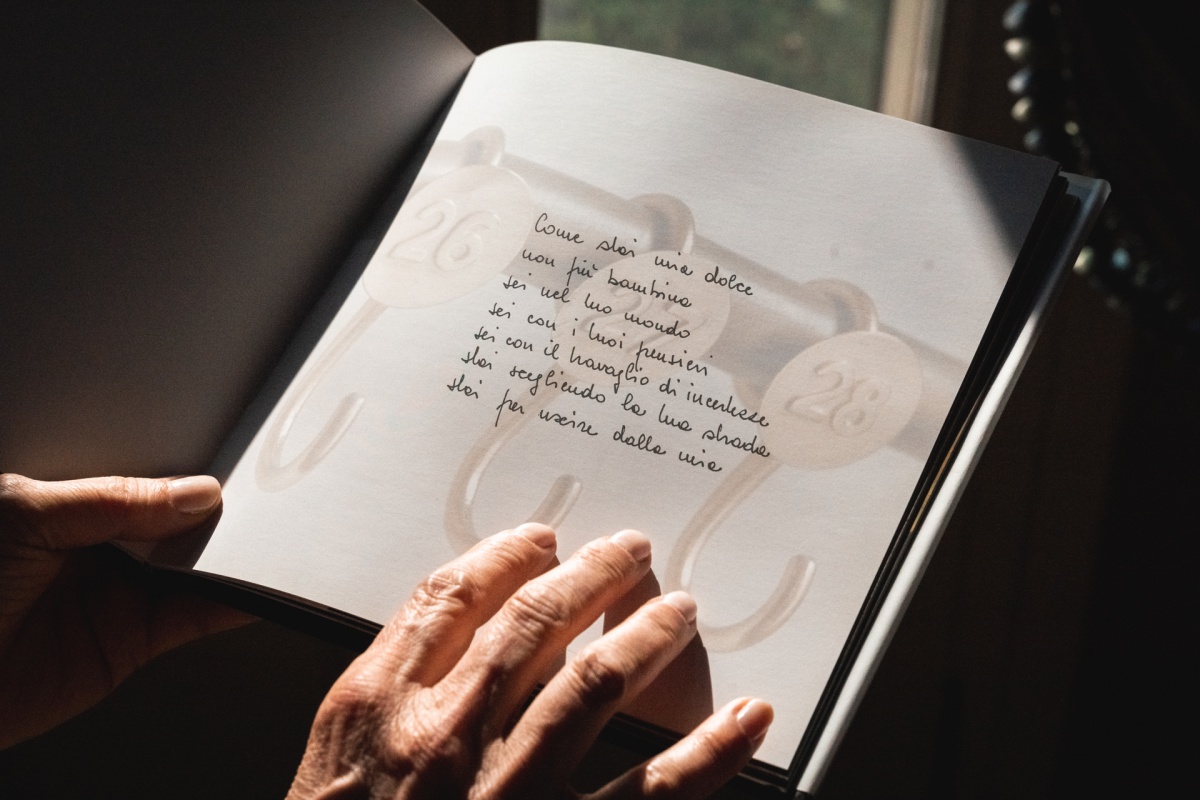 26
27
28
Come stai mia dolce
non più bambina
sei nel tuo mondo
sei con i tuoi pensieri
sei con il travaglio di incertezze
stai scegliendo la tua strada
stai per uscire dalla mia